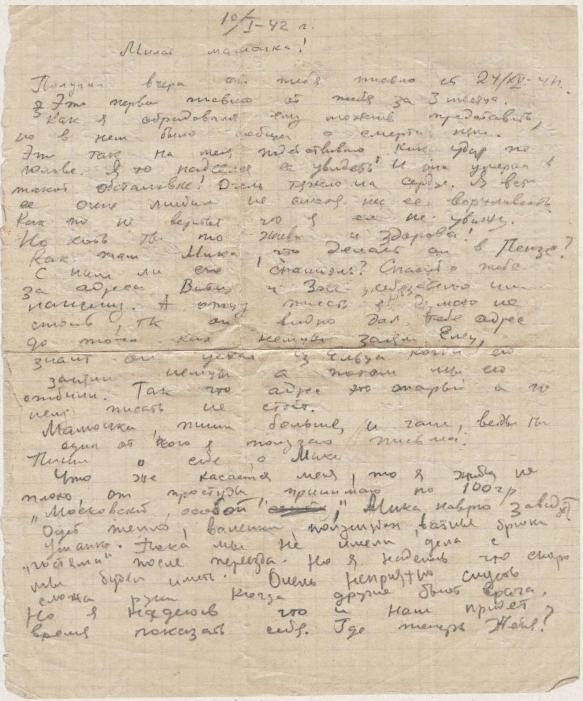 10/I-42 г.
Милая мамочка!
Получил вчера от тебя письмо от 24/XII-41г.
Это первое письмо от тебя за 3 месяца.
Как я обрадовался ему можешь представить,
но в нем было сообщ о смерти
Это так на меня подействовало как удар по
голове. Я то надеялся ее увидеть! И она умерла в
такой обстановке! Очень тяжело на сердце. Я ведь
ее очень любил не смотря на ее ворчливость
Как то не верится что я ее не увижу.
Но хоть ты то жива и здорова!
Как там Мика, что делает он в Пензе?
С ним ли его Спасибо тебе
за адреса Вити и обязательно им
напишу. А отцу писать я думаю не
стоит, тк он видно дал тебе адрес
до того как немцы заняли Елец,
значит он уехал из Ельца когда его
заняли немцы а потом наши его
отбили. Так что адрес это старый и по
нему писать не стоит.
Мамочка, пиши больше, и чаще, ведь ты
один от кого я получаю письма.
Пиши о себе, о Мике
Что же касается меня, то я живу не
плохо, от простуды принимаю по 100гр
"Московской особой" Мика наврно завидует
Одет тепло, валенки, полушубок, ватные брюки
ушанка. Пока мы не имели дела с
"гостями" после переезда. Но я надеюсь что скоро
мы будем иметь. Очень неприятно сидеть
сложа руки когда другие бьют врага.
Но я надеюсь что и нам придет
время показать себя. Где теперь Женя?